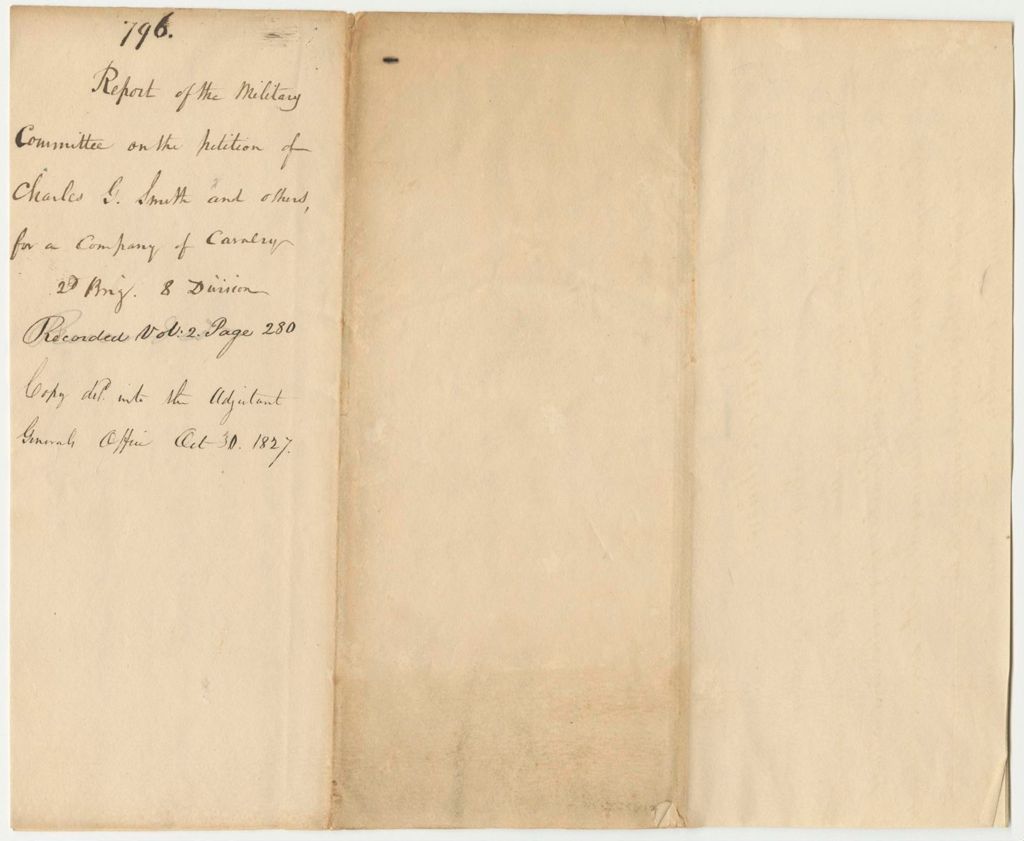 796.
Report of the Military
Committee on the petition of
Charles G. Smith and others,
for a Company of Cavalry
2d Brig. 8 Division
Recorded Vol: 2. Page 280
Copy deld. into the Adjutant
Generals Office Oct 30. 1827.